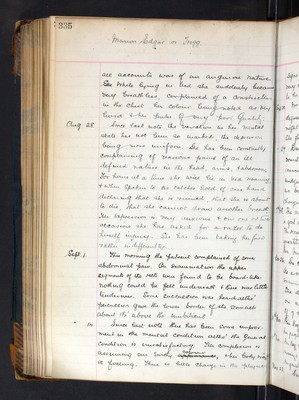 335
Marion Edgar or Trigg.
all accounts was of an anginous nature.
She while lying in bed she suddenly became
very breathless, complained of a constriction
in the chest her colour being noted as very
livid & her pulse of very poor quality.
Aug 28. Since last note the variation in her mental
state has not been so marked the depression
being more uniform. She has been constantly
complaining of various pains of an ill
defined nature in the head, arms, & abdomen.
For hours at a time she will lie in bed moaning,
& when spoken to she catches hold of one's hand
declaring that she is ruined, that she is about
to die, that she cannot draw another breath.
Her expression is very anxious & on one or two
occasions she has asked for a razor to do
herself injury. She has been taking her food
rather indifferently.
Sept. 1. This morning the patient complained of some
abdominal pain. On examination the upper
segments of the recti were found to be board-like.
nothing could be felt underneath & there was little
tenderness. Some
percussion gave the lower border of the stomach
about 1½" above the umbilicus.
14. Since last note there has been some improve-
ment in the mental condition altho' the general
condition is unsatisfactory. Her complexion is
assuming an earthy colour appearance, & her body weight
is falling. There is little change in the physical